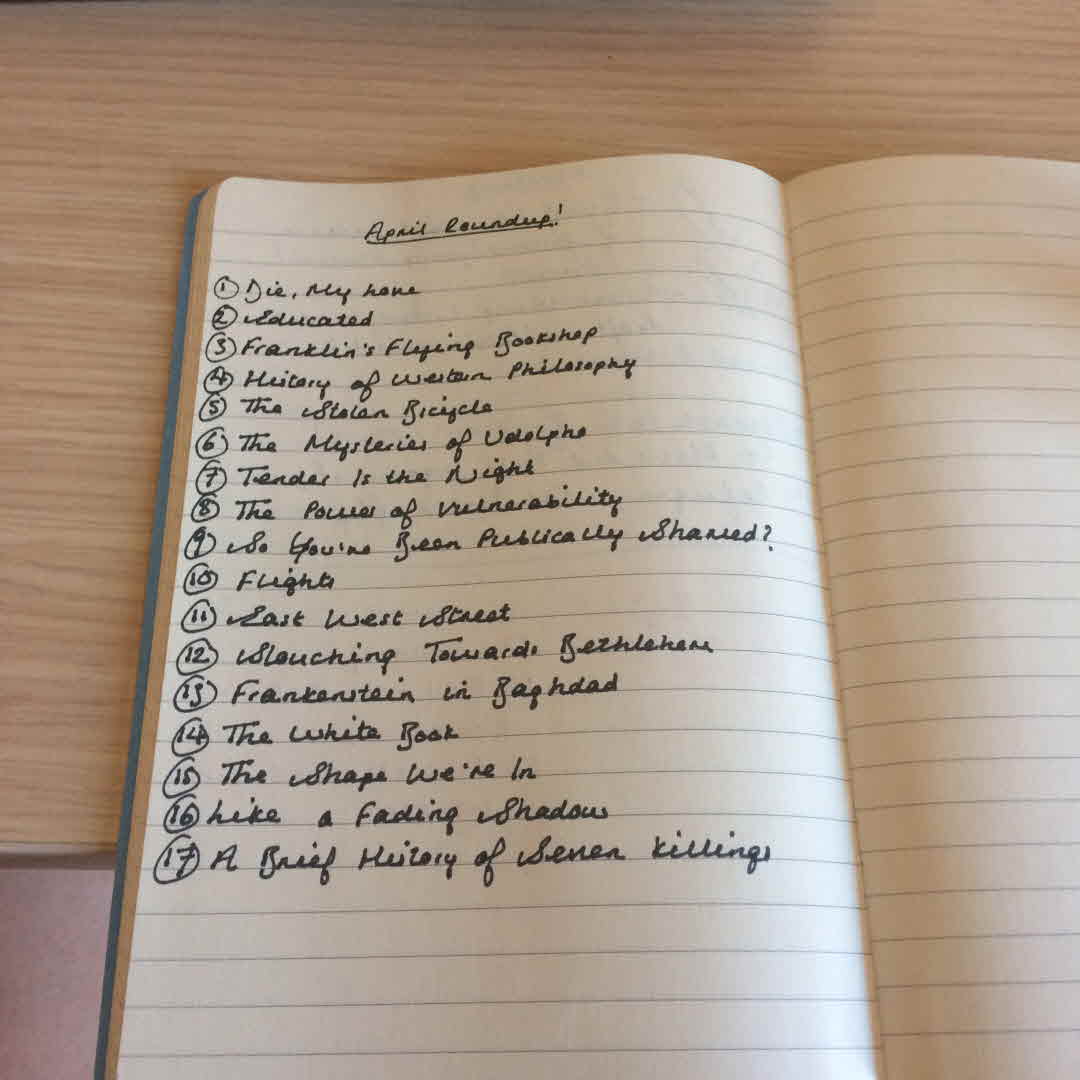 April Roundup!
1 Die, My Love
2 Educated
3 Franklin's Flying Bookshop
4 History of Western Philosophy
5 The Stolen Bicycle
6 The Mysteries of Udolpho
7 Tender Is the Night
8 The Power of Vulnerability
9 So You've Been Publically Shamed?
10 Flights
11 East West Street
12 Slouching Towards Bethlehem
13 Frankenstein in Baghdad
14 The White Book
15 The Shape We're In
16 Like a Fading Shadow
17 A Brief History of Seven Killings